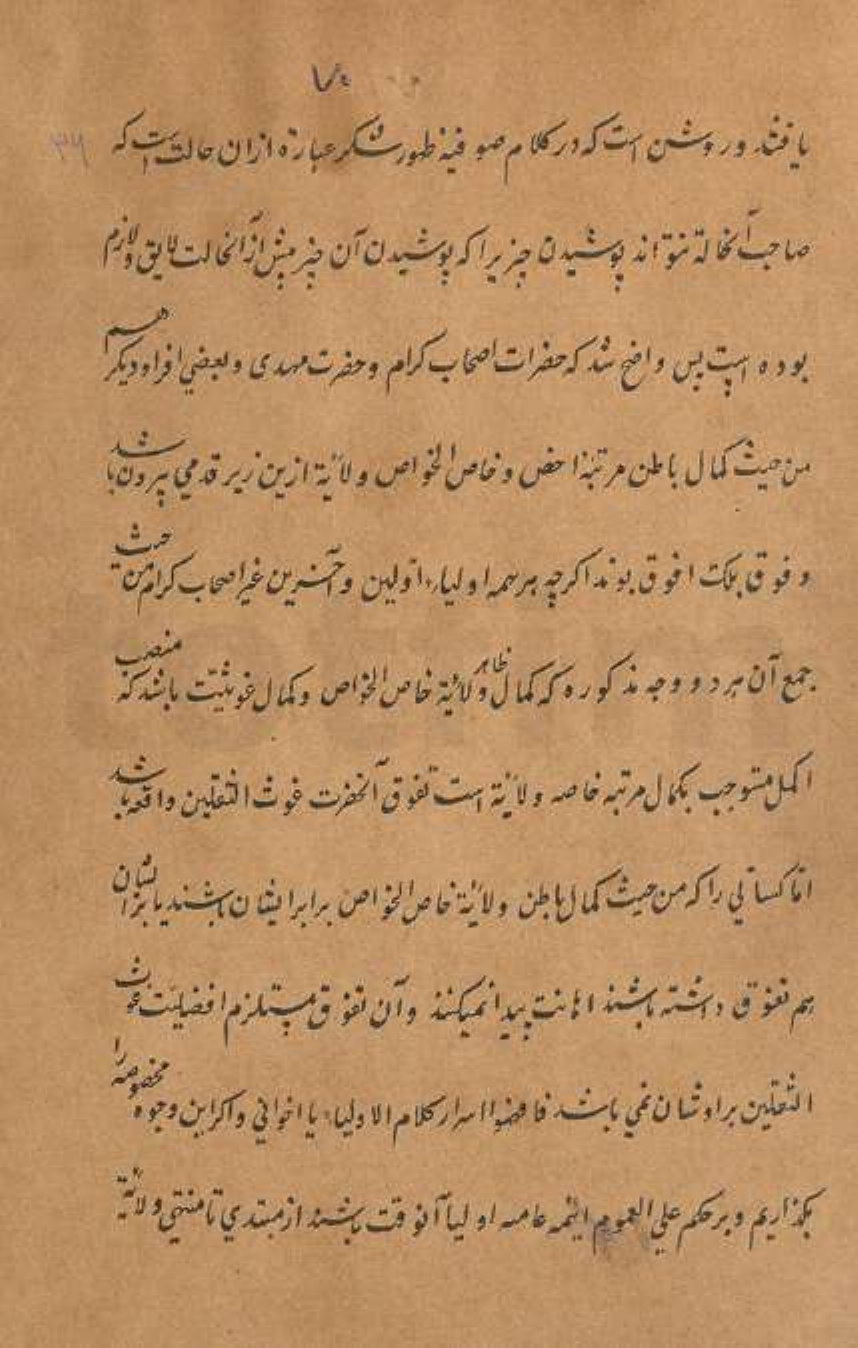 ۷۰
۳۶
یافتند و روشن است که در کلام صوفیه ظهور سکر عبارة ازان حالت است که
صاحب آنحالة نتواند پوشیدن چیزیرا که پوشیدن آن چیز پیش از آنحالت لایق و لازم
بوده است پس واضح شد که حضرات اصحاب کرام و حضرت مهدی و بعضی افراد دیگر هم
من حیث کمال باطن مرتبۀ اخص و خاص الخواص ولایة ازین زیر قدمی بیرون باشد
و فوق بلکت افوق بوند اکرچه بر همه اولیاء اولین و آخرین غیر اصحاب کرام من حیث
جمع آن هر دو وجه مذکوره که کمال ظاهر و ولائیة خاص الخواص و کمال غوثیّت باشد که منصب
اکمل مستوجب بکمال مرتبه خاصه ولایة است تفوق آنحضرت غوث الثقلین واقعه باشد
امّا کسانی را که من حیث کمال باطن ولایة خاص الخواص برابر ایشان باشند یا بر ایشان
هم تفوق داشته باشند اهانت پیدا نمیکند و آن تفوق مستلزم افضلیت غوث
الثقلین بر اوشان نمی باشد فافهموا اسرار کلام الاولیاء یا اخوانی و اکر این وجوه مخصوصه را
بکذاریم و بر حکم علی العموم ائمه عامه اولیا آنوقت باشند از مبتدی تا منتهی ولایة